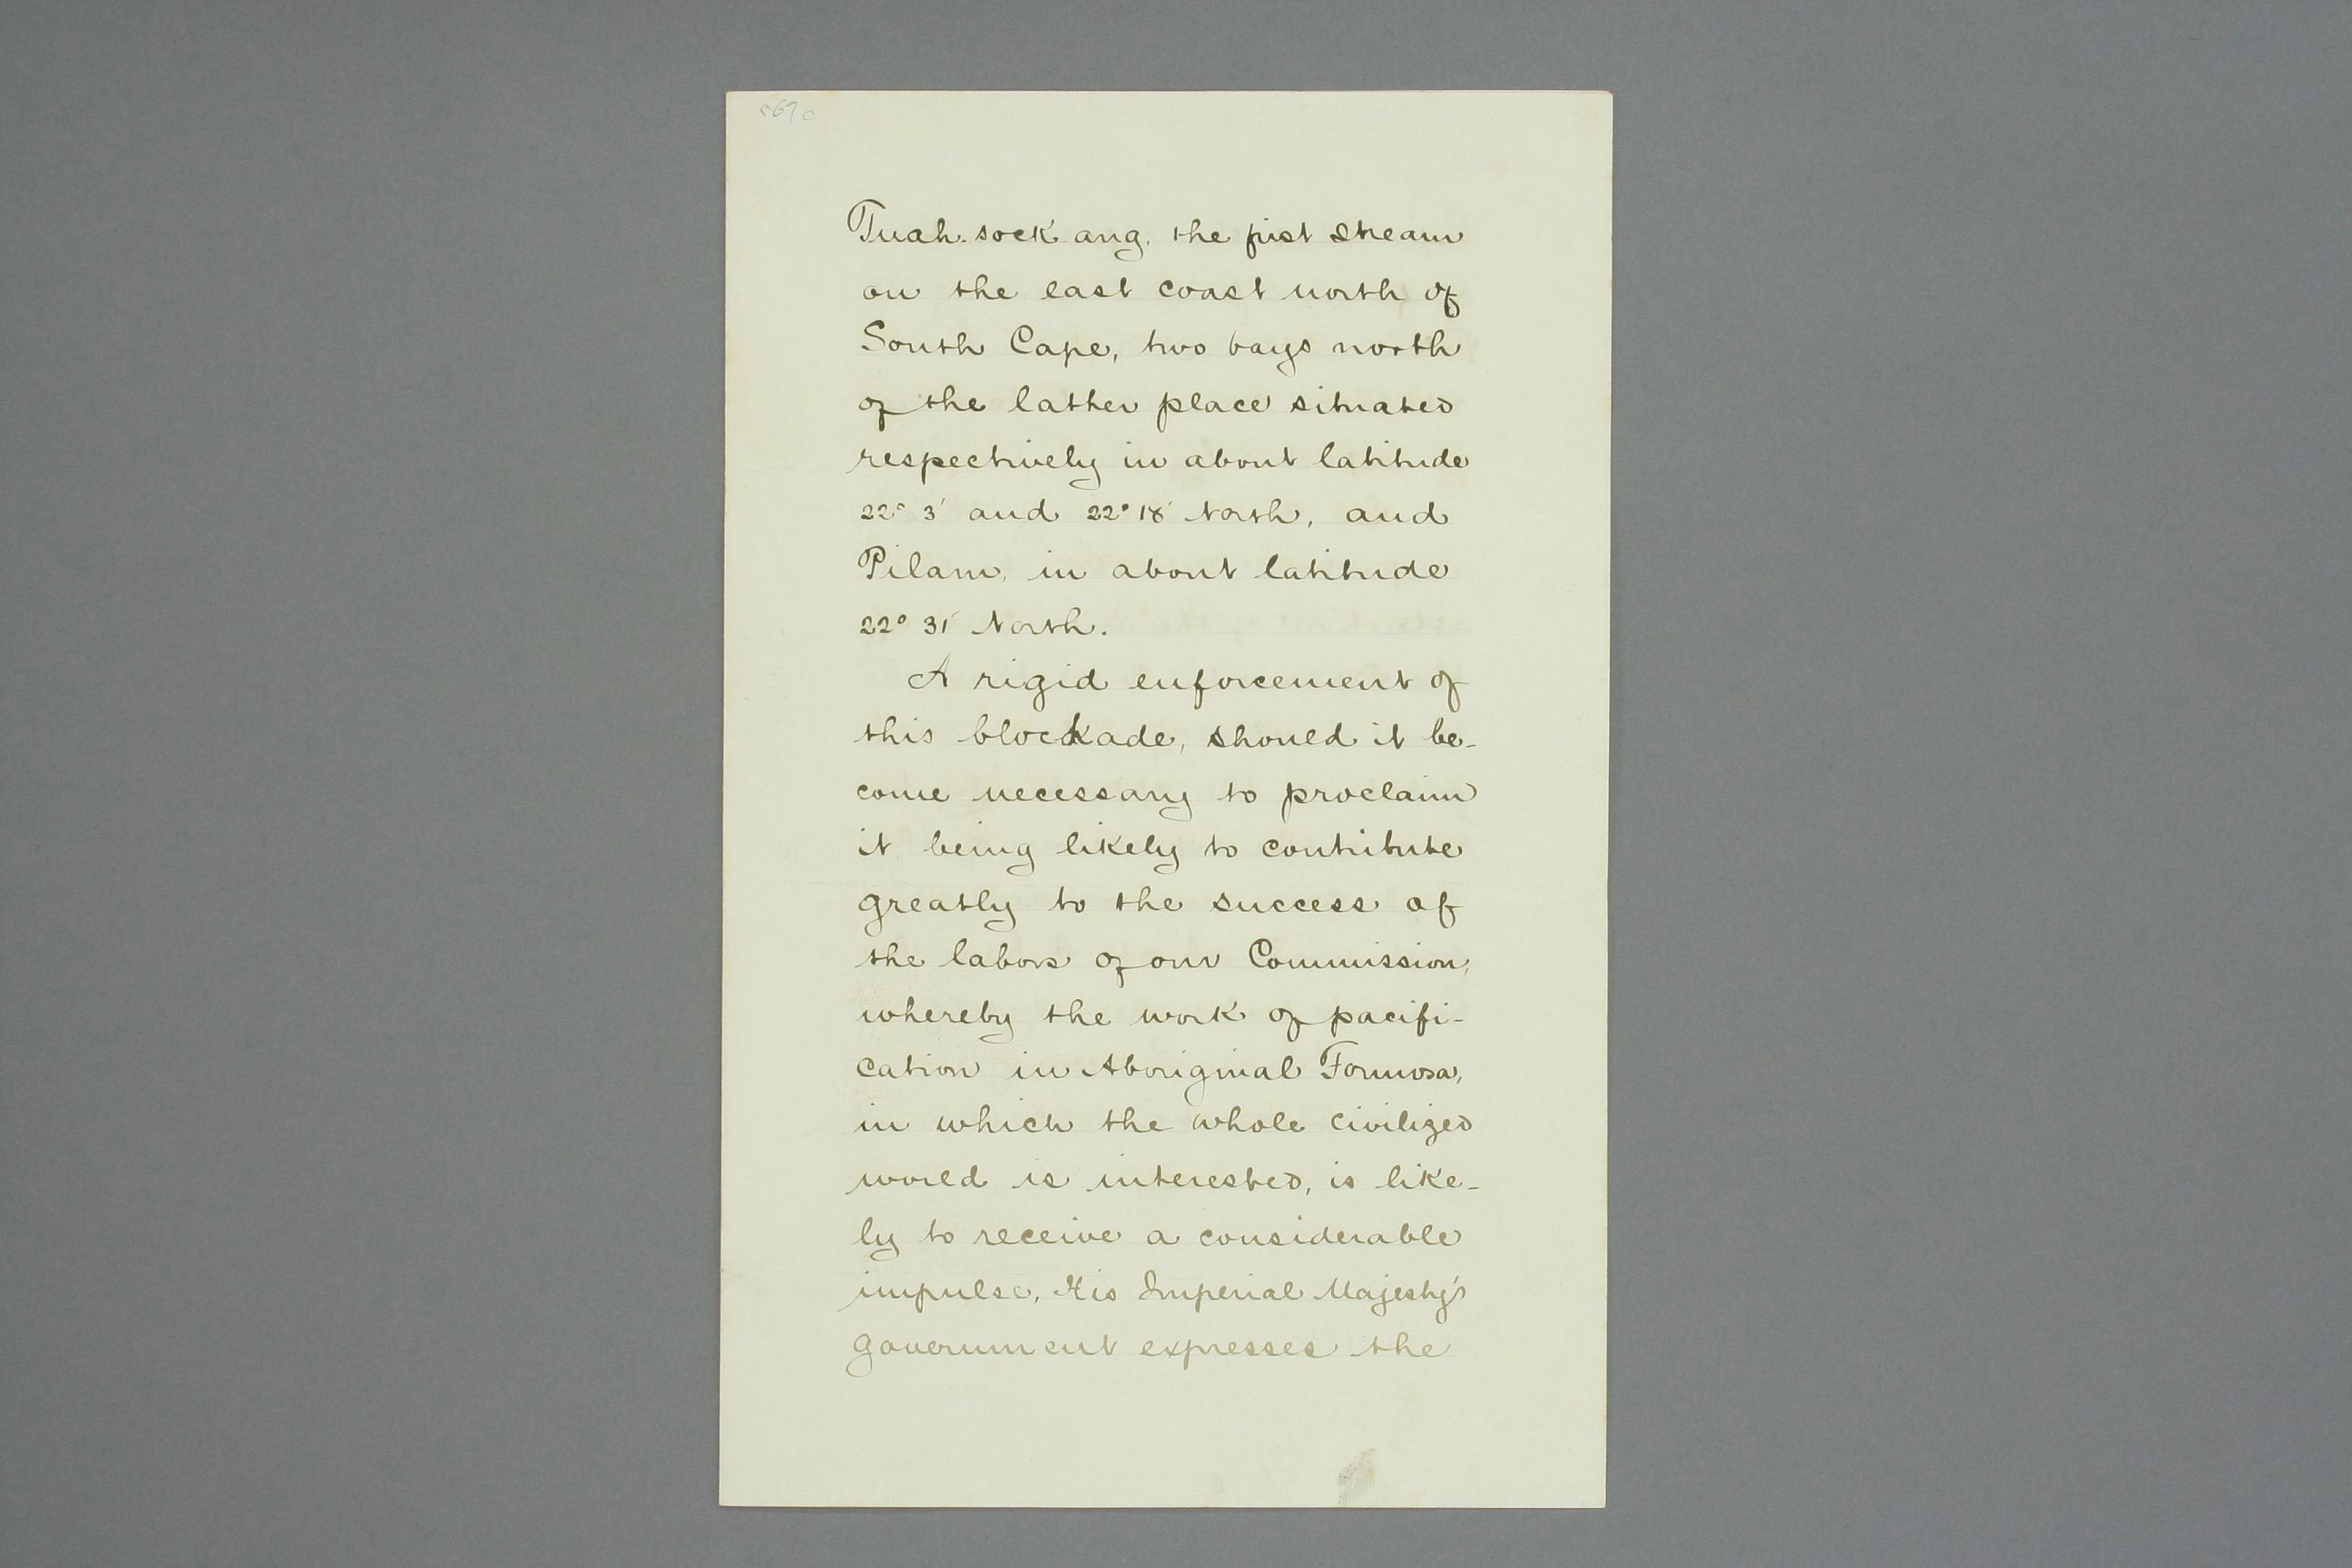 Tuah-sock-ang, the first stream
on the east coast north of
South Cape, two bays north
of the latter place situated
respectively in about latitude
22° 3' and 22° 18' North, and
Pilam, in about latitude
22° 31' North.
A rigid enforcement of
this blockade, should it be-
come necessary to proclaim
it being likely to contribute
greatly to the success of
the labors of our Commission,
whereby the work of pacifi-
cation in Aboriginal Formosa,
in which the whole civilized
world is interested, is like-
ly to receive a considerable
impulse, His Imperial Majesty's
government expresses the